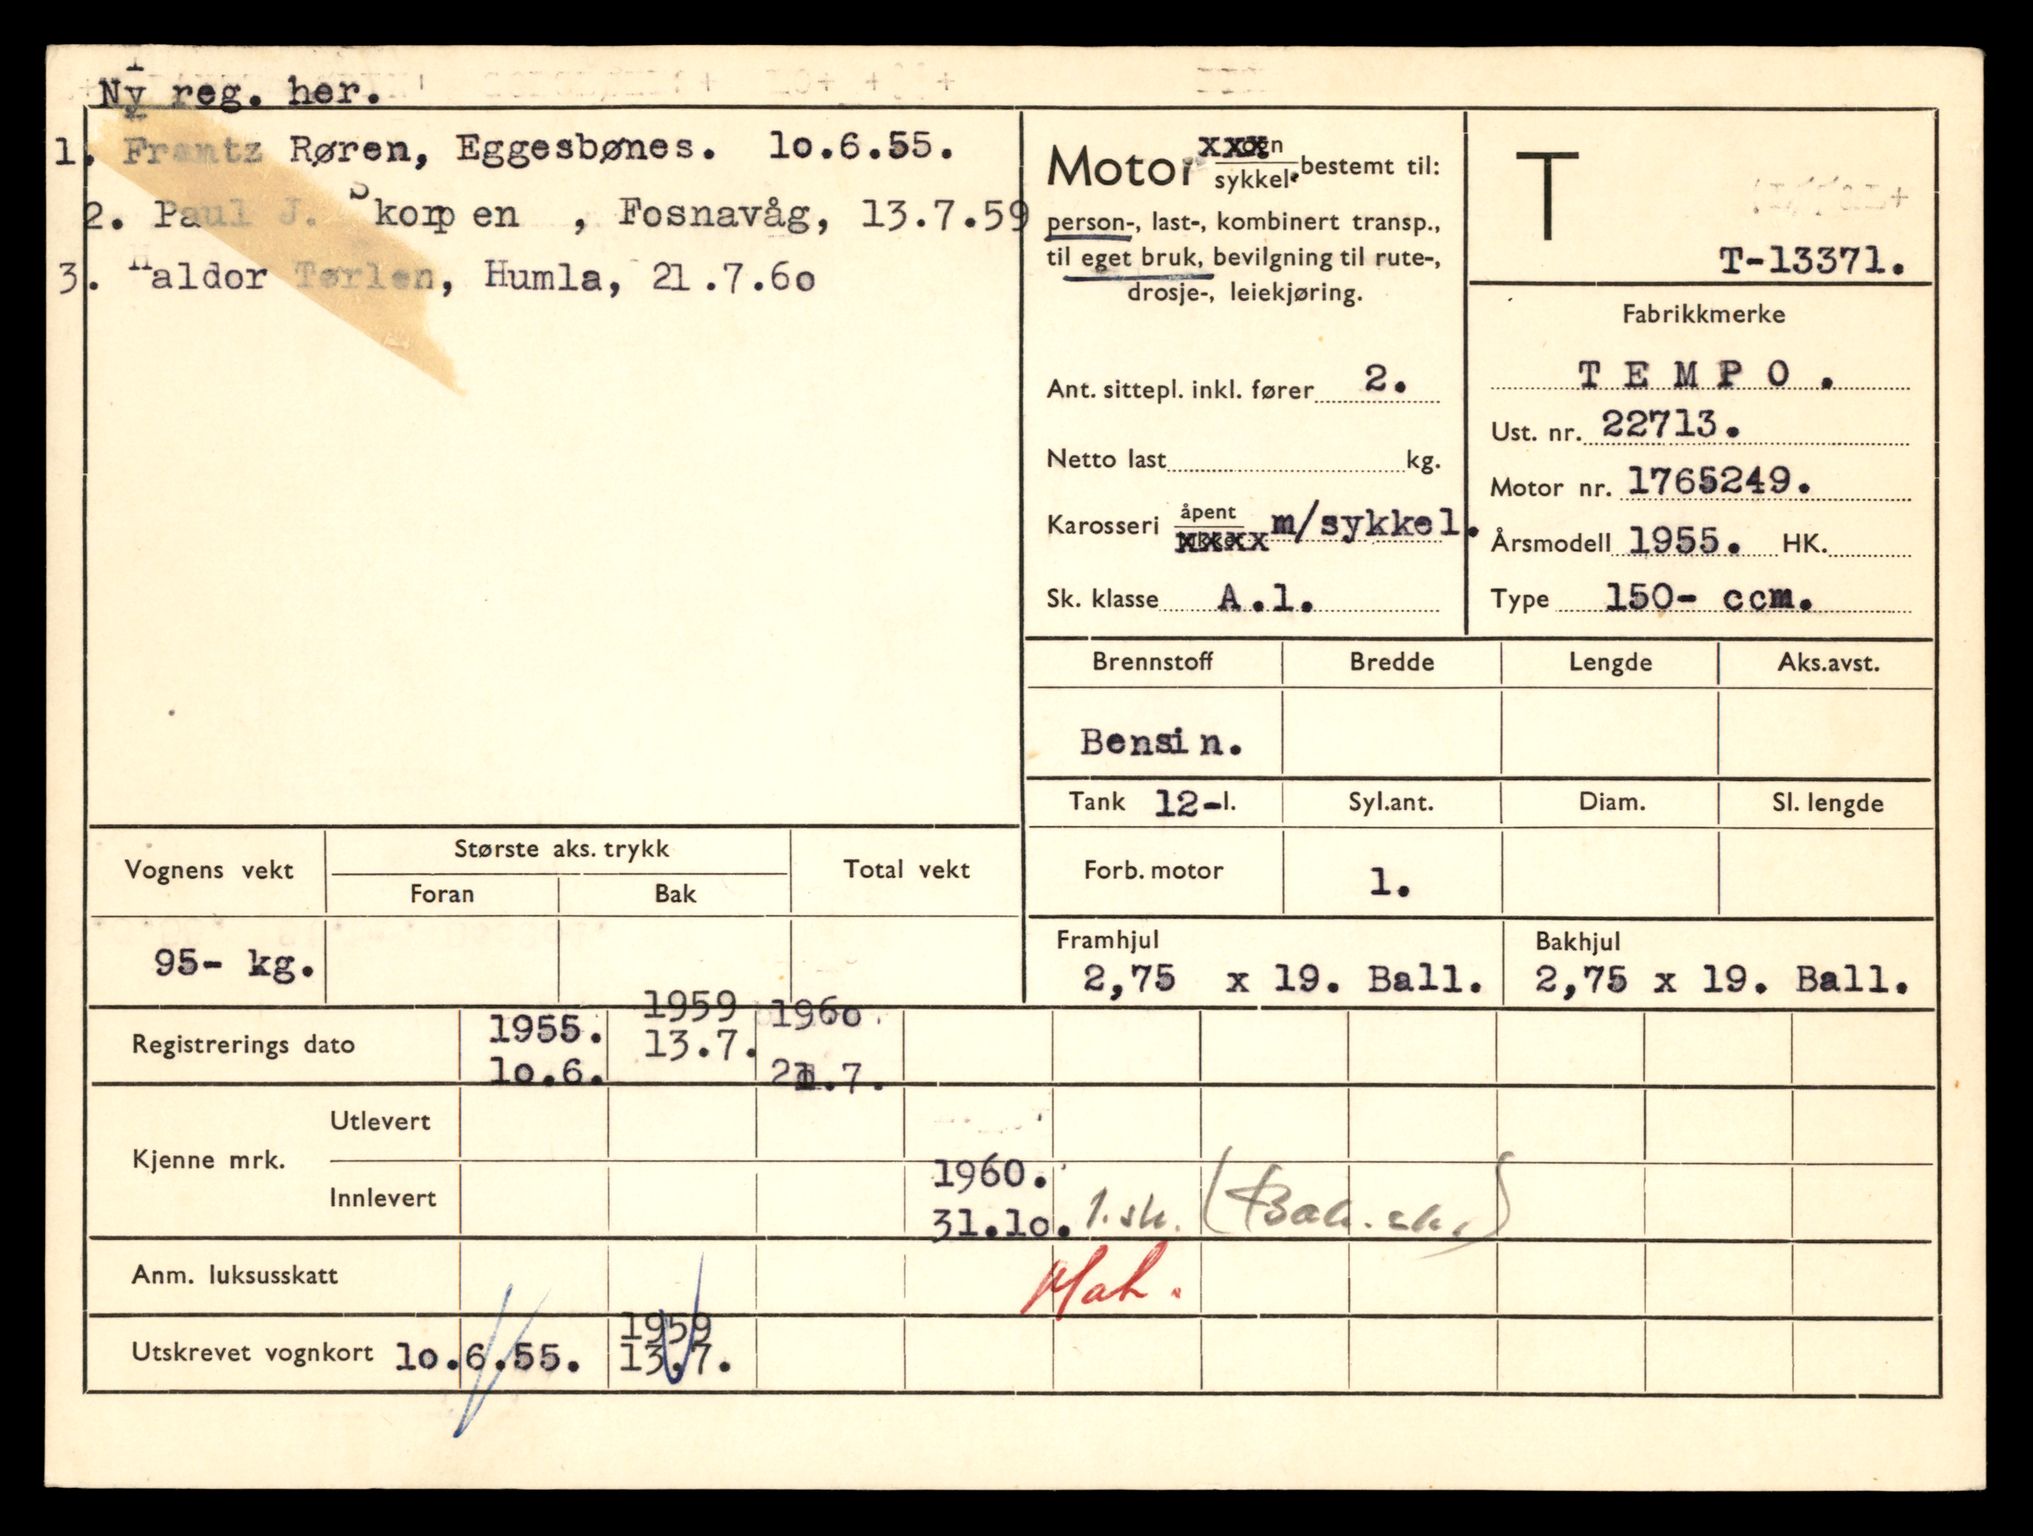 Ny reg. her.
1. Frantz Røren, Eggesbønes. 10.6.55.
2. Paul J. Skorpen , Fosnavåg, 13.7.59
3. Haldor Tørlen, Humla, 21.7.60
Motor vogn sykkel bestemt til:
person-, last-, kombinert transp.,
til eget bruk, bevilgning til rute-,
drosje-, leiekjøring.
Ant. sittepl. inkl. fører 2.
Netto last kg.
Karosseri åpent lukket m/sykkel.
Sk. klasse A.1.
T
T-13371.
Fabrikkmerke
TEMPO.
Ust. nr. 22713.
Motor nr. 1765249.
Årsmodell 1955. HK.
Type 150- ccm.
Brennstoff Bredde Lengde Aks.avst.
Bensin.
Tank 12-l. Syl.ant. Diam. Sl. lengde
Forb. motor 1.
Framhjul Bakhjul
2,75 x 19. Ball. 2,75 x 19. Ball.
Vognens vekt Største aks. trykk Total vekt
Foran Bak
95- kg.
Registrerings dato 1955. 10.6. 1959 13.7. 1960 21.7.
Kjenne mrk. Utlevert
Innlevert 1960. 31.10. 1.sk. (Bak.sk.)
Anm. luksusskatt
Utskrevet vognkort 10.6.55. 1959 13.7.